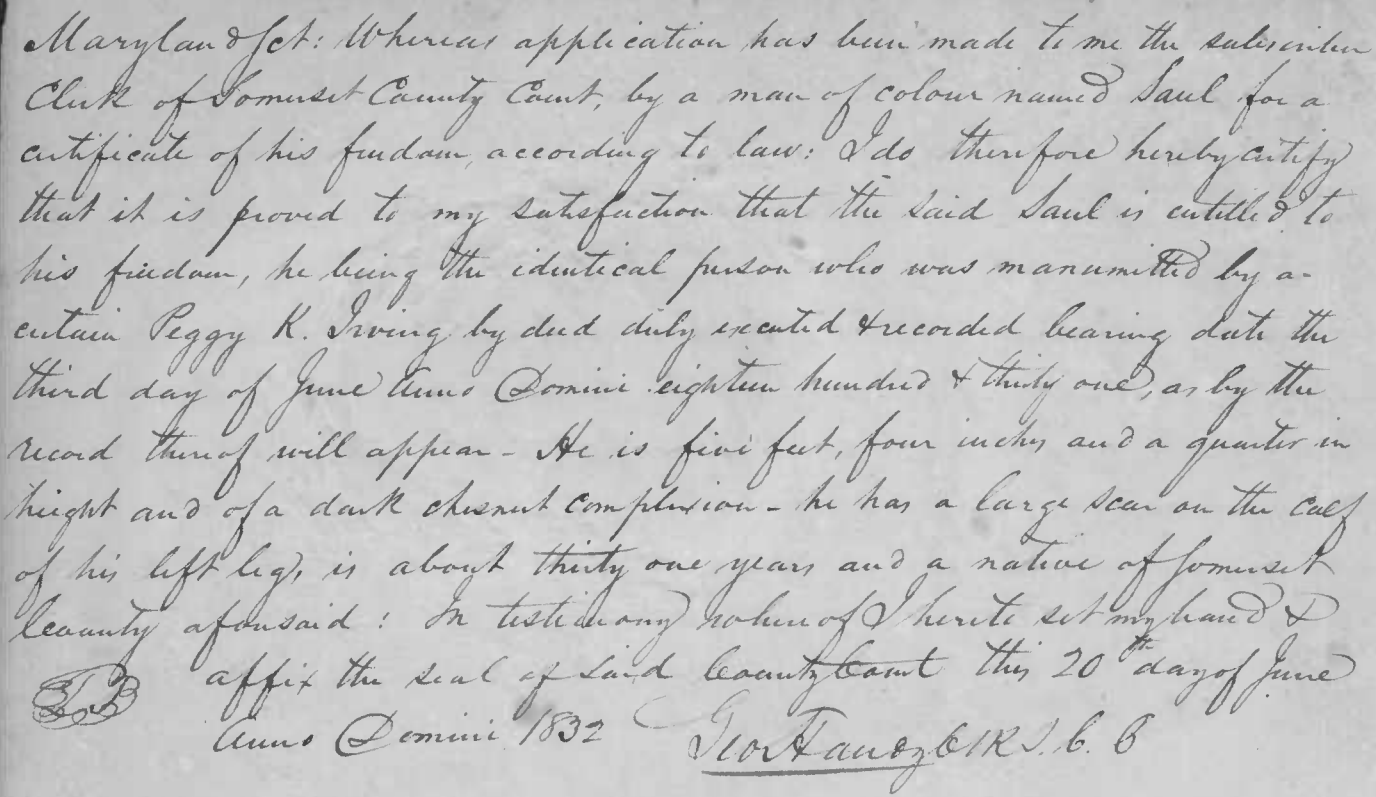 Maryland Sct: Whereas application has been made to me the subscriber
Clerk of Somerset County Court, by a man of colour named Saul for a
certificate of his freedom, according to law: I do therefore hereby certify
that it is proved to my satisfaction that the said Saul is entitled to
his freedom, he being the identical person who was manumitted by a
certain Peggy K. Irving by deed duly executed & recorded bearing date the
third day of June Anno Domini eighteen hundred & thirty one, as by the
record thereof will appear - He is five feet, four inches and a quarter in
height and of a dark chesnut complexion - he has a large scar on the calf
of his left leg, is about thirty one years and a native of Somerset
County aforesaid: In testimony whereof I hereto set my hand &
affix the seal of said County Court this 20th day of June
Anno Domini 1832 Geo Handy Clk S. C. C